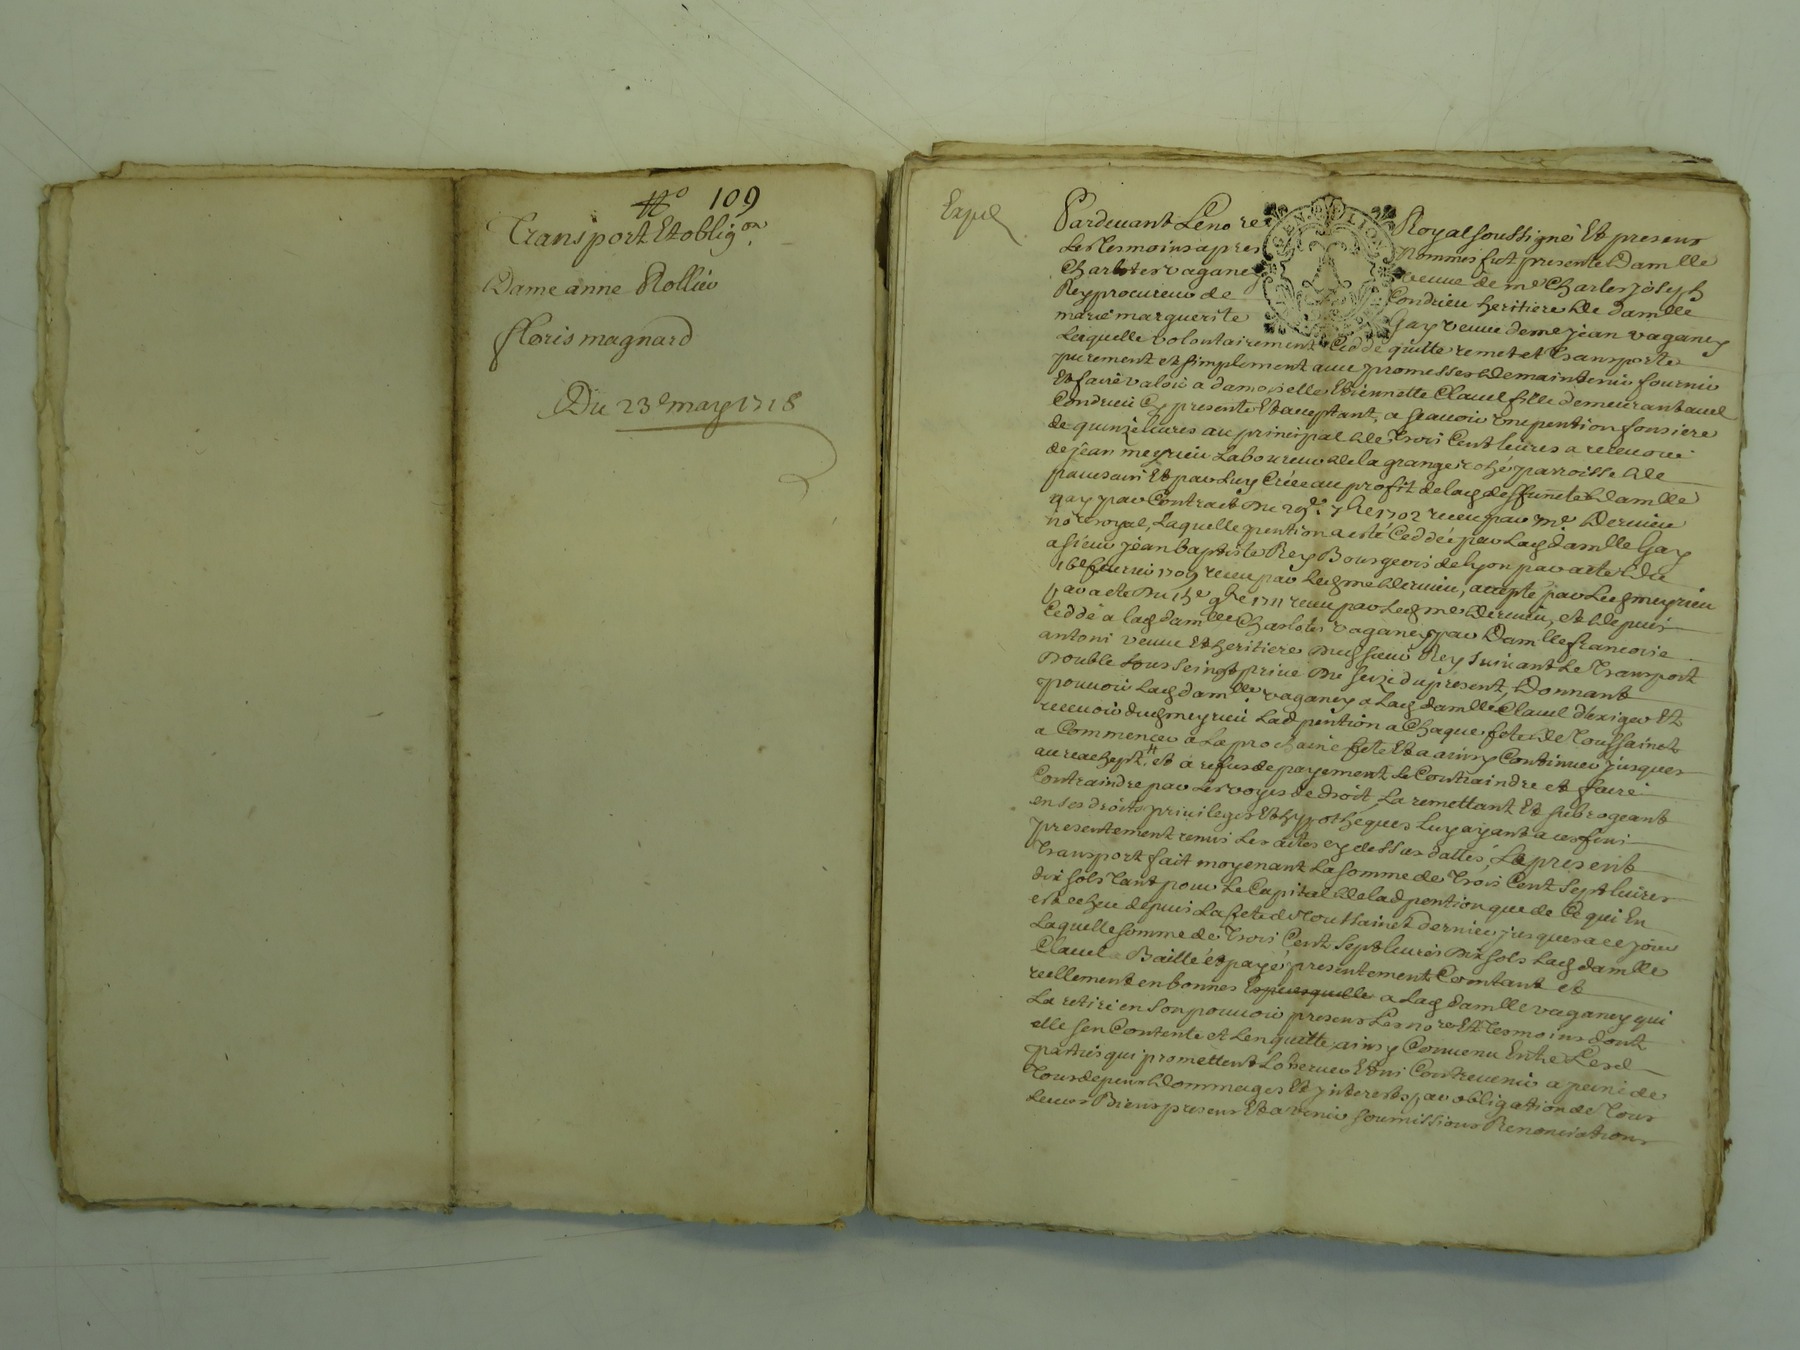 No 109
Transport Et oblig.on
Dame anne Rollin
fleris magnard
Du 23e may 1718
Expd
Pardevant Le no.re Royal soussigné Et presens
Les Tesmoins apres Nommés fut presente Damlle
Charlotes vaganey veuve de me Charles joseph
Rey procureur de Condrieu heritiere de damlle
marie marguerite Gay veuve de me jean vaganey
Laquelle volontairement Cedde quitte remet et transporte
purement et simplement avec promesses de maintenir fournir
Et faire valoir a damoiselle Etiennette Clavel fille demeurant aud
Condrieu Cy presente Et aceptant, a scavoir une pention fonsiere
de quinze livres au principal de Trois Cent livres a recevoir
de jean meyrieu Laboureur de la grange parroisse de
Et par Luy Créee au profit de lad deffunete damlle
gay par Contract du 29e 7bre 1702 receu par me Dervieu
no.re royal, Laquelle pention a esté Ceddée par Lad damlle Gay
a sieur jean baptiste Rey Bourgeois de lyon par acte du
16e fevrier 1709 receu par Led me Dervieu, accepté par Led meyrieu
par acte du 9bre 1711 receu par Led me Dervieu, et depuis
Ceddé a lad damlle Charlotes vaganey par Damlle francoise
antoni veuve Et heritiere dud sieur Rey suivant Le Transport
Double sous seing prive du seize du present, Donnant
pouvoir Lad damlle vaganey a Lad damlle Clavel d'exiger Et
recevoir dud meyrieu Lad pention a Chaque fete de Toussaincts
a Commencer a La prochaine fete Et a ainsy Continuer jusques
au reachept, et a refus de payement Le Contraindre et faire
Contraindre par Les voyes de droit, La remettant Et subrogeant
en ses droits privileges Et hypotheques Luy ayant a ces fins
presentement remis Les actes cy dessus dattés, Le present
Transport fait moyenant La somme de Trois Cent Sept livres
dix sols Tant pour Le Capital de lad pention que de Ce qui En
est echeu depuis La fete de Toussainct dernier jusques a ce jour
Laquelle somme de Trois Cent Sept livres dix sols Lad damlle
Clavel a Baillé et payé presentement Comtant et
reellement en bonnes Especes a Lad damlle vaganey qui
La retiré en son pouvoir presens Les no.re Et Tesmoins dont
elle s'en Contente et L'en quitte, ainsy Convenu Entre Lesd
parties qui promettent L'observer Et ni Contrevenir a peine de
Tous depens Dommages Et jnterests par obligation de Tous
Leurs Biens presens Et a venir soumissions Renonciations